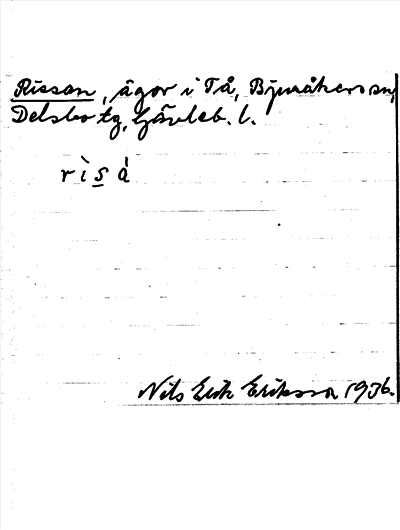 Rissan, ägor i Tå, Bjuråkers sn,
Delsbo tg, Gävleb. l.
rìsá
Nils Erik Eriksson 1936.